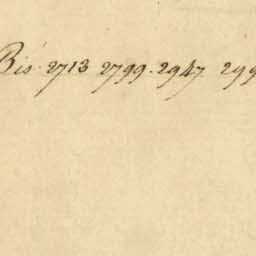 Bis. 2713 2799. 2947 299